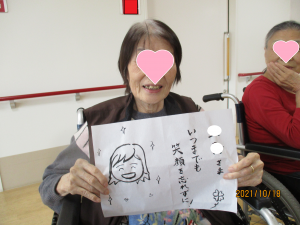 さま
いつまでも
笑顔を忘れずに
2021/10/18